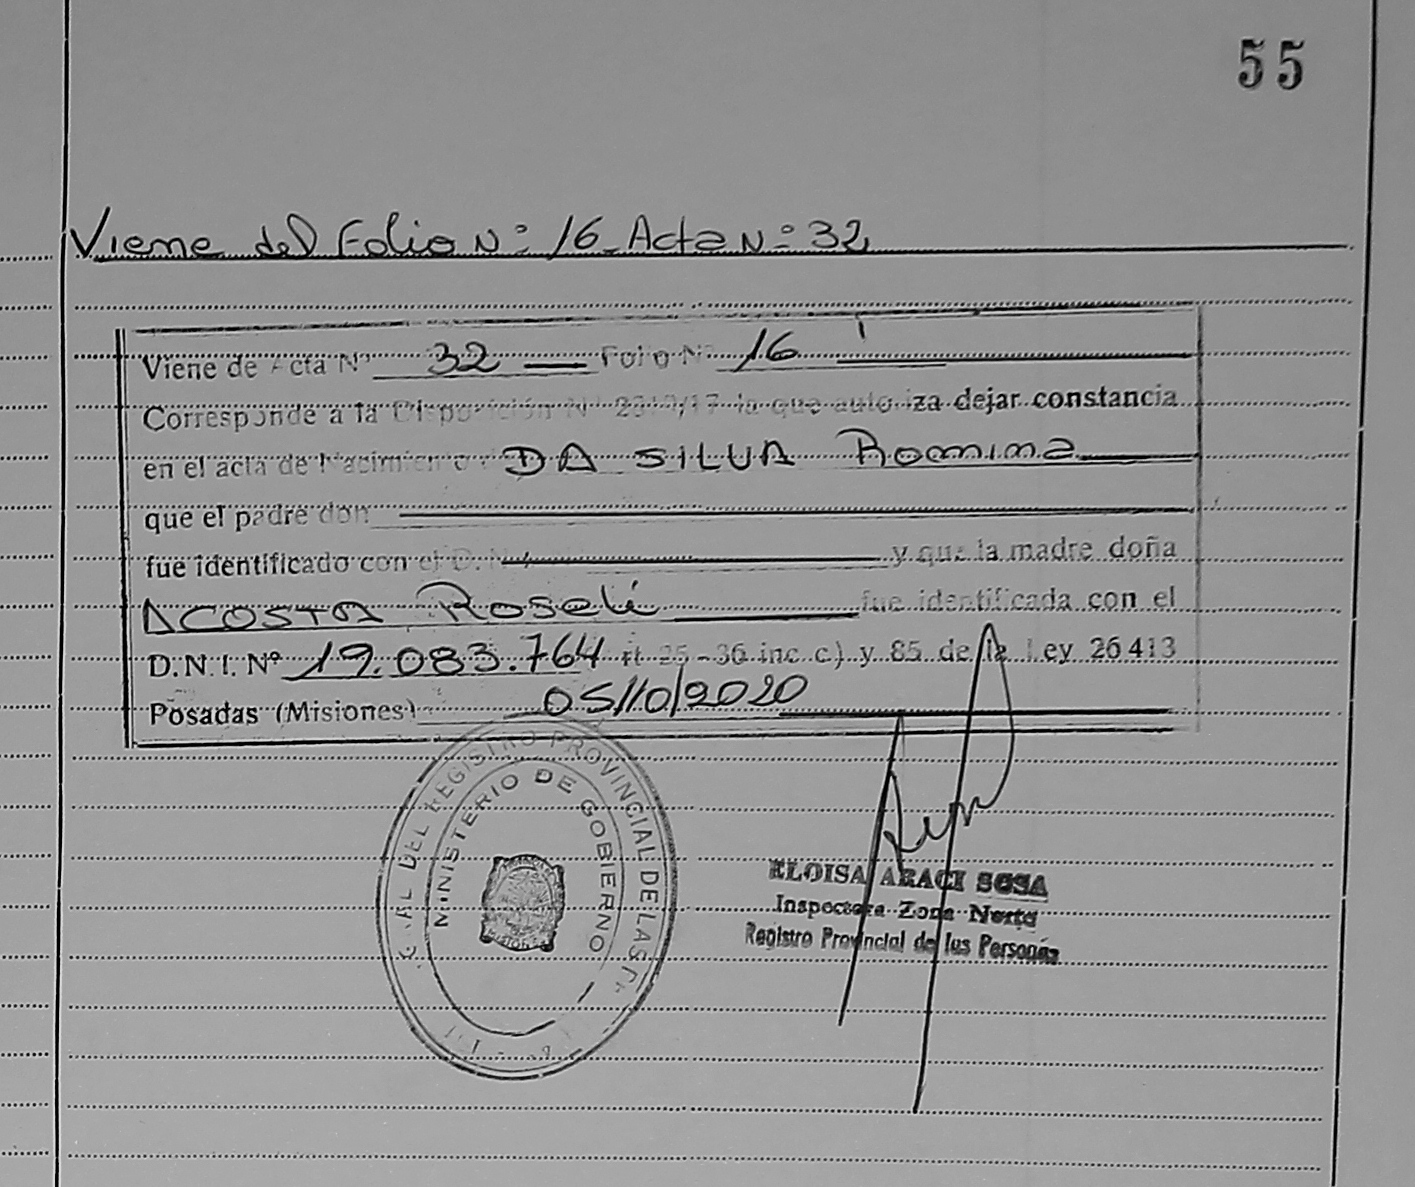 55
Viene del Folio N: 16 Acta N: 32
Viene de Acta Nº 32 Folio Nº 16
Corresponde a la Disposición Nº la que autoriza dejar constancia
en el acta de Nacimiento DA SILVA Romina
que el padre don
fue identificado con el D.N.I. y que la madre doña
ACOSTA Roseli fue identificada con el
D.N.I. Nº 19.083.764 rt 25-36 inc c) y 85 de la Ley 26413
Posadas (Misiones) 05/10/2020
AL DEL REGISTRO PROVINCIAL DE LAS
MINISTERIO DE GOBIERNO
ELOISA ARACI SOSA
Inspectora Zona Norte
Registro Provincial de las Personas